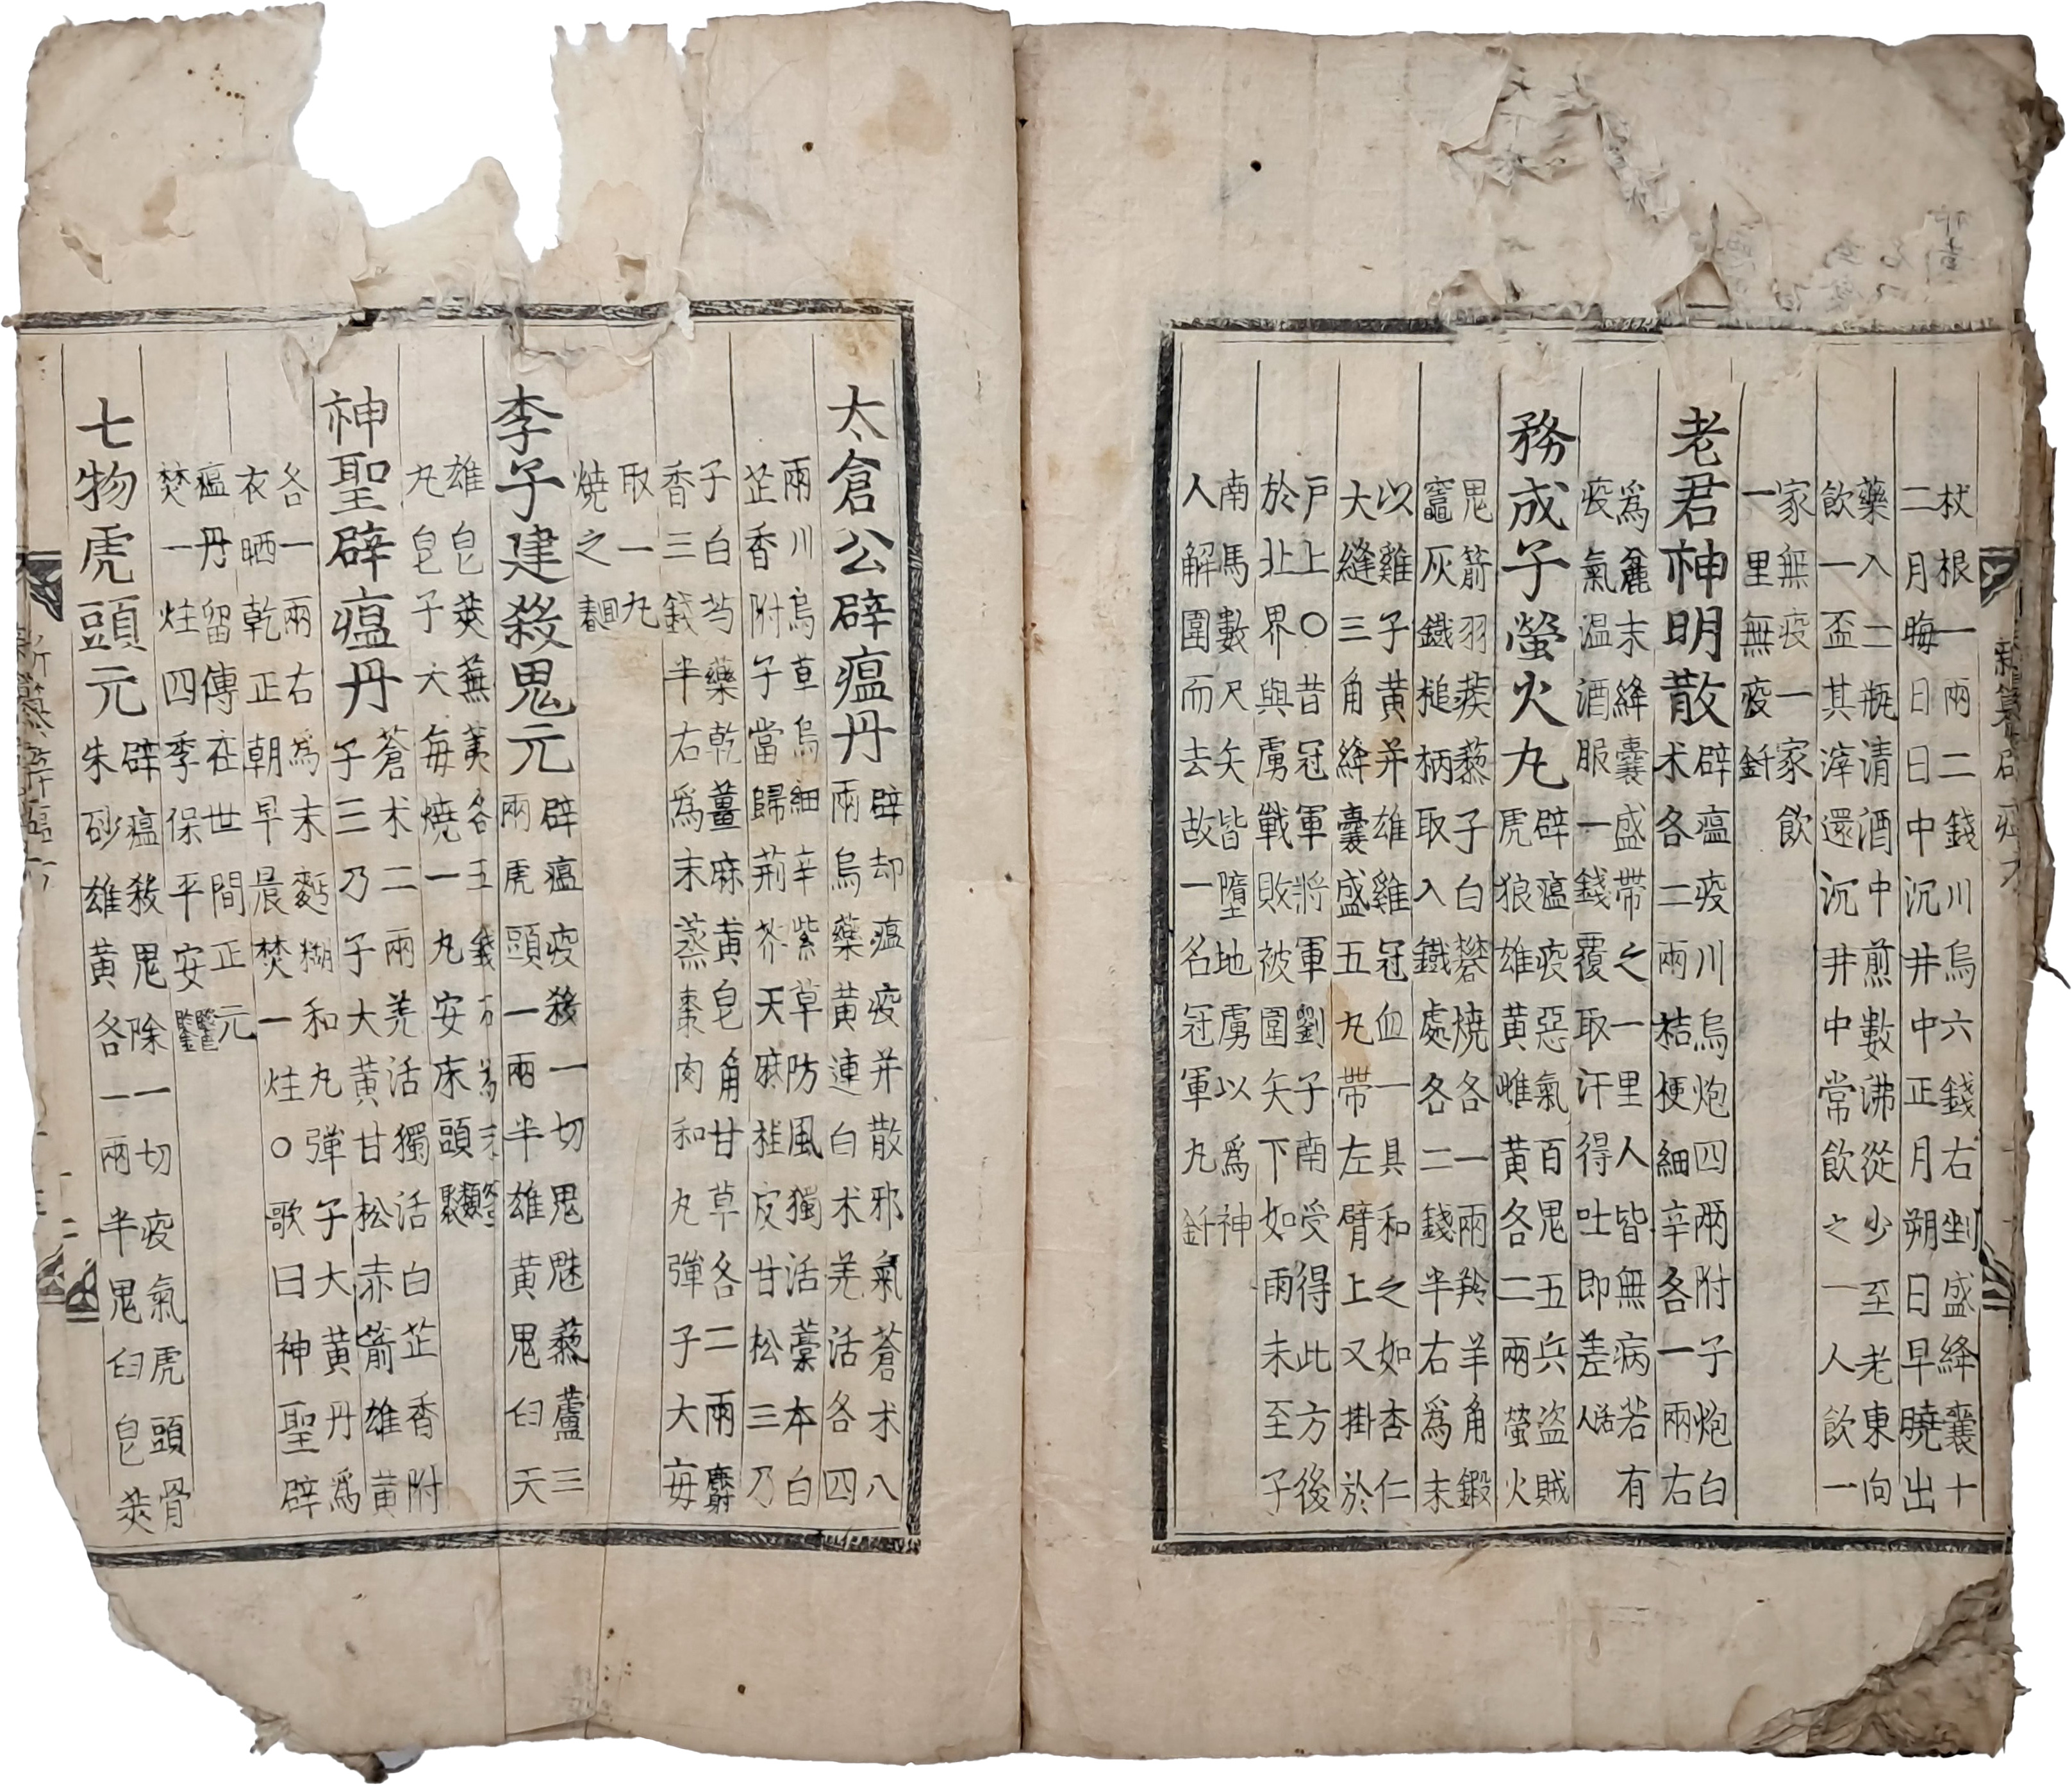 杖根一兩二錢川烏六錢右剉盛絳囊十
二月晦日日中沉井中正月朔日早曉出
藥入二甁清酒中煎數沸從少至老東向
飮一盃其滓還沉井中常飮之一人飮一
家無疫一家飮
一里無疫釺
老君神明散
辟瘟疫川烏炮四兩附子炮白
术各二兩桔梗細辛各一兩右
爲麁末絳囊盛帶之一里人皆無病若有
疫氣温酒服一錢覆取汗得吐即差活人
務成子螢火丸
辟瘟疫惡氣百鬼五兵盜賊
虎狼雄黃雌黃各二兩螢火
鬼箭羽蒺藜子白礬燒各一兩羚羊角鍛
竈灰鐵槌柄取入鐵處各二錢半右爲末
以雞子黃幷雄雞冠血一具和之如杏仁
大縫三角絳囊盛五丸帶左臂上又掛於
戶上○昔冠軍將軍劉子南受得此方後
於北界與虜戰敗被圍矢下如雨未至子
南馬數尺矢皆墮地虜以爲神
人解圍而去故一名冠軍丸釺
太倉公辟瘟丹
辟却瘟疫幷散邪氣蒼术八
兩烏藥黃連白术羌活各四
兩川烏草烏細辛紫草防風獨活藁本白
芷香附子當歸荊芥天麻桂皮甘松三乃
子白芍藥乾薑麻黃皂角甘草各二兩麝
香三錢半右爲末蒸棗肉和丸彈子大每
取一丸
燒之回春
李子建殺鬼元
辟瘟疫殺一切鬼魅藜蘆三
兩虎頭一兩半雄黃鬼臼天
雄皂莢蕪荑各五錢右爲末
丸皂子大每燒一丸安床頭類聚
神聖辟瘟丹
蒼术二兩羌活獨活白芷香附
子三乃子大黃甘松赤箭雄黃
各一兩右爲末麪糊和丸彈子大黃丹爲
衣晒乾正朝早晨焚一炷○歌曰神聖辟
瘟丹留傳在世間正元
焚一炷四季保平安醫鑑
七物虎頭元
辟瘟殺鬼除一切疫氣虎頭骨
朱砂雄黃各一兩半鬼臼皂莢